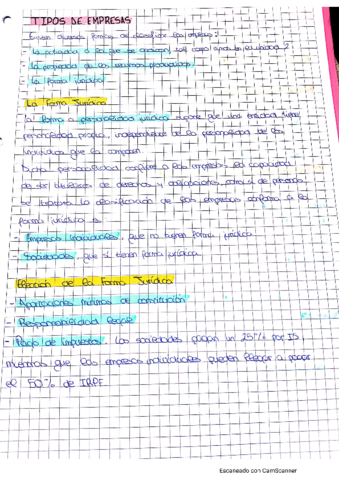 TIPOS DE EMPRESAS
Existen diversas formas de clasificar las empresas:
- La actividad a la que se dedican, así como
- La propiedad de los recursos productivos.
- La forma jurídica
La Forma Jurídica
La forma o personalidad jurídica supone que una entidad tiene
personalidad propia, independiente de la personalidad de los
individuos que la componen.
Dicha personalidad confiere a las empresas la capacidad
de ser titulares de derechos y obligaciones,
la clasificación de las empresas conforme a la
forma jurídica es
- Empresas Individuales, que no tienen forma jurídica.
- Sociedades, que sí tienen forma jurídica.
Elección de la Forma Jurídica
- Aportaciones mínimas de constitución
- Responsabilidad legal
- Pago de impuestos. Las sociedades pagan un 25% por IS,
mientras que las empresas individuales pueden llegar a pagar
el 50% de IRPF.
Escaneado con CamScanner